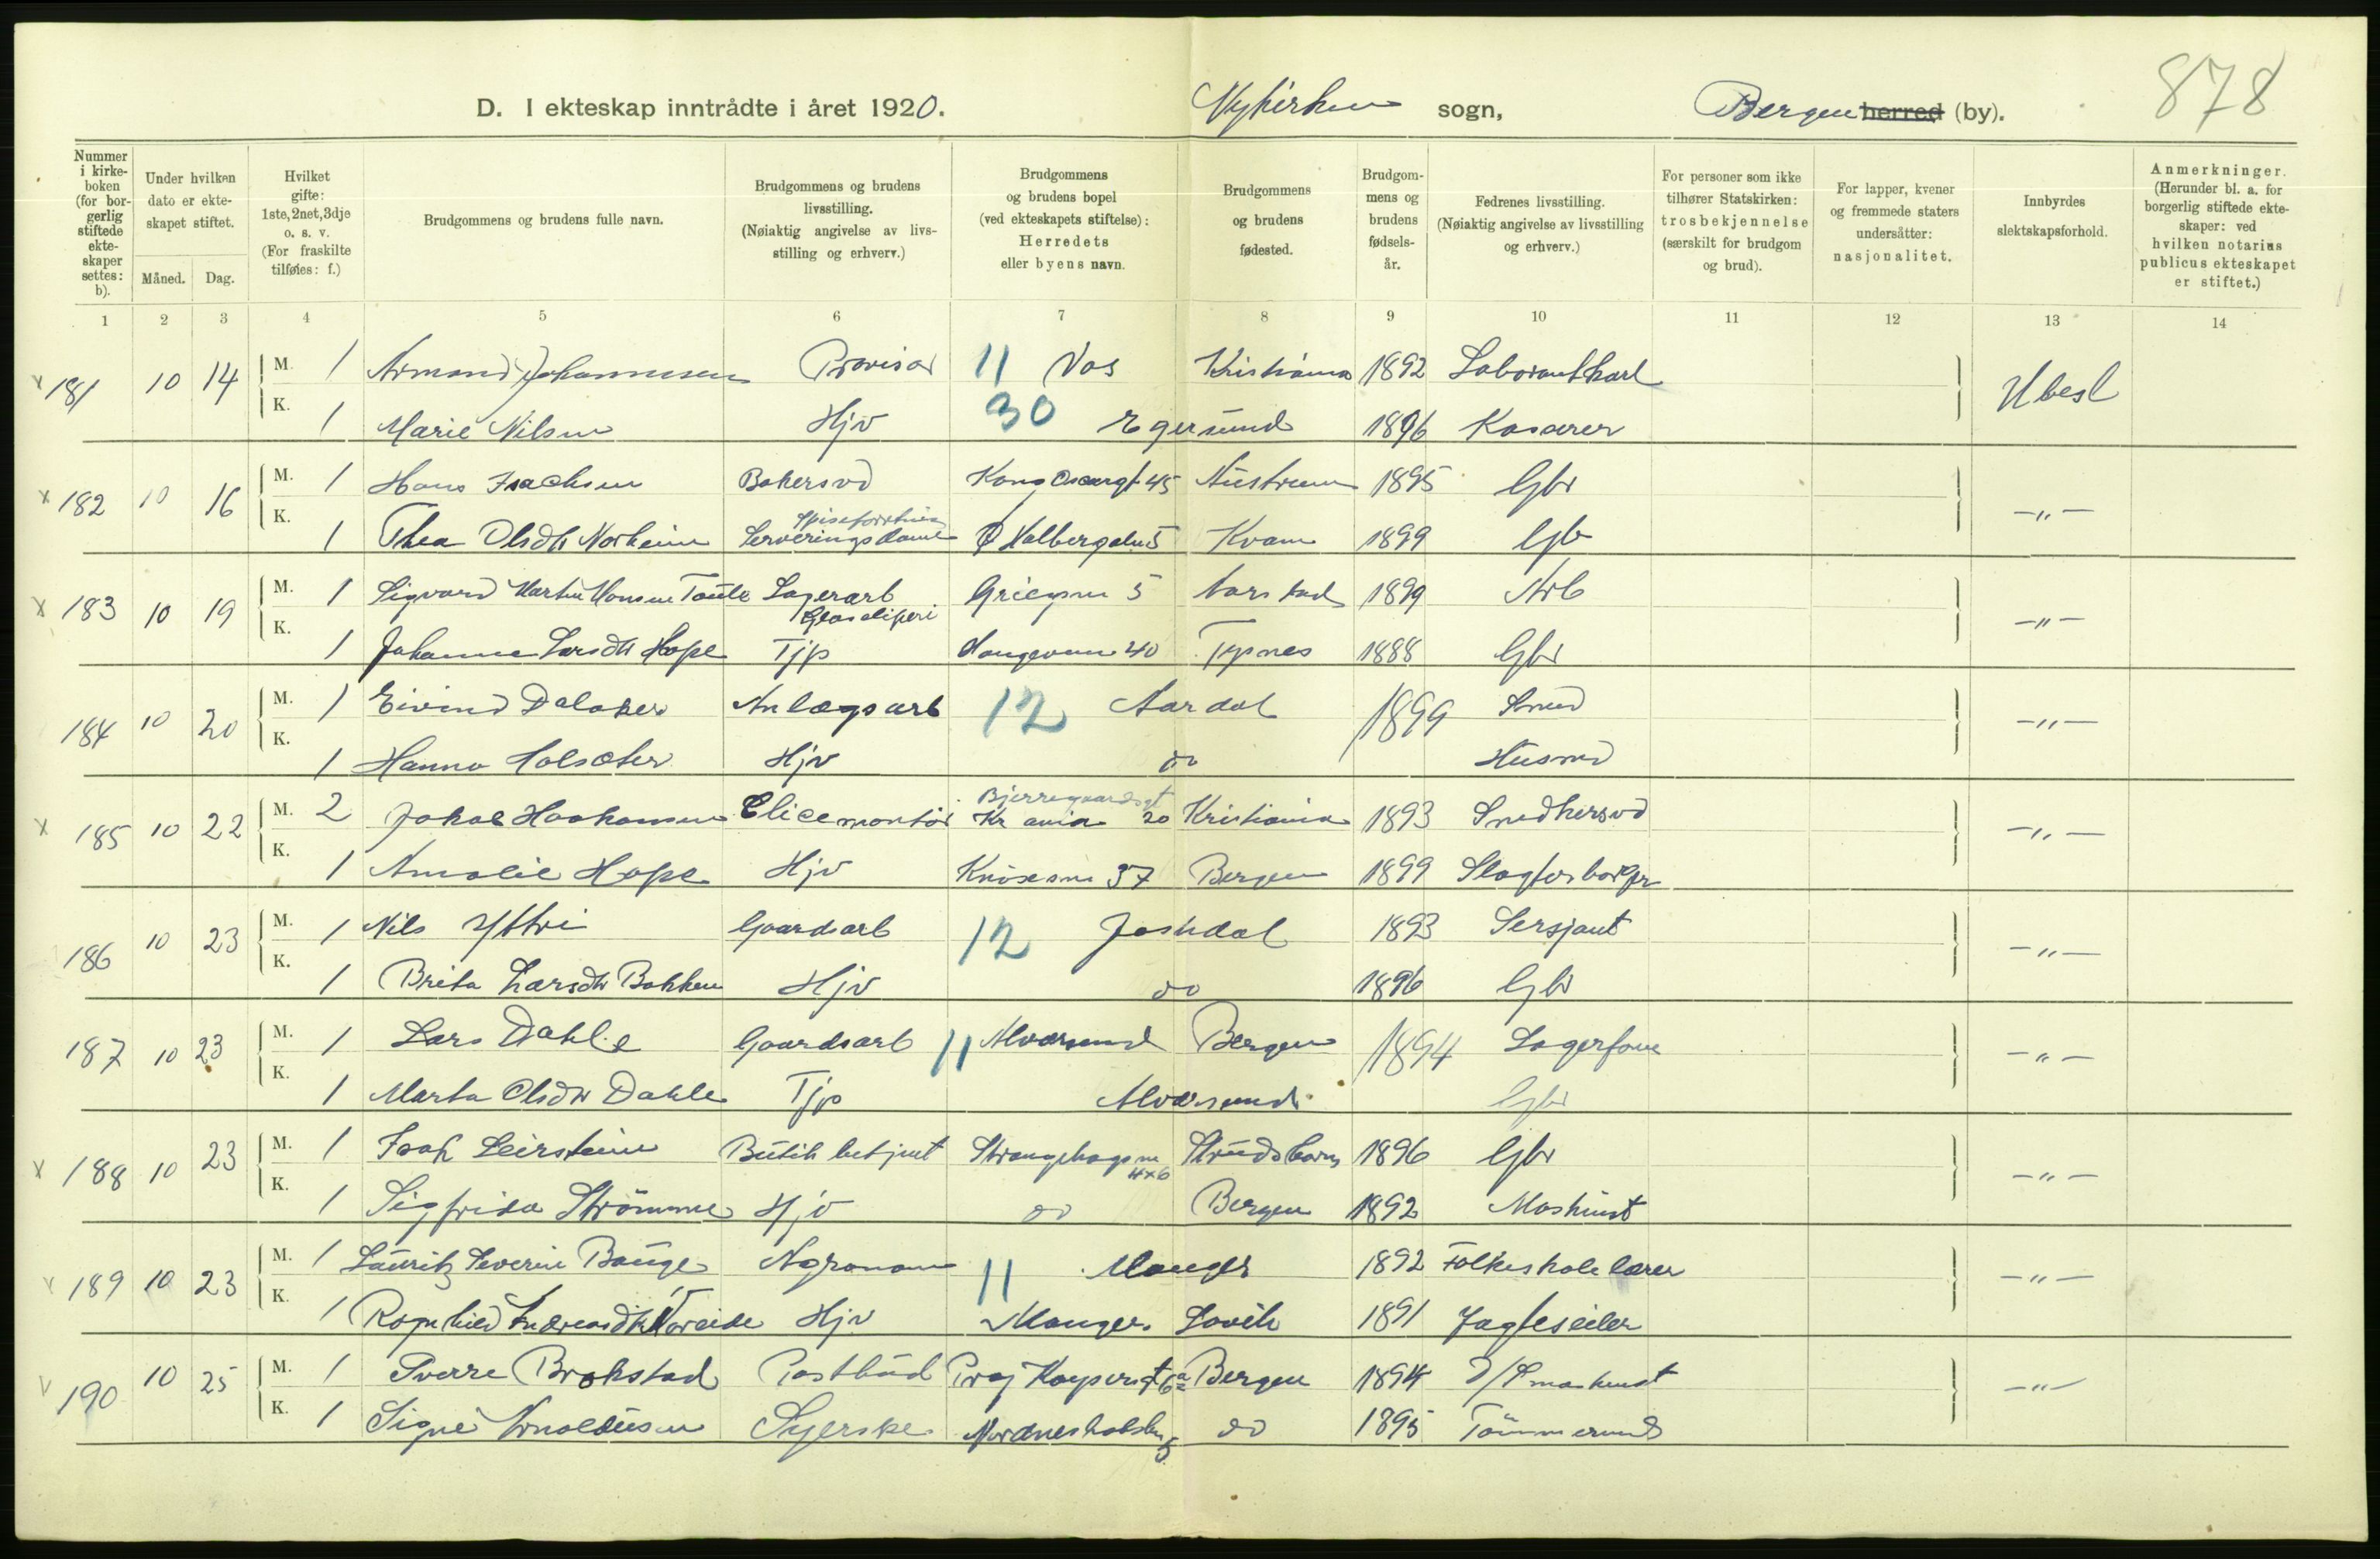 878
D. I ekteskap inntrådte i året 1920. Nykirken sogn, Bergen herred (by).
Nummer i kirkeboken (for borgerlig stiftede ekteskaper settes: b). Under hvilken dato er ekteskapet stiftet. Måned. Dag. Hvilket gifte: 1ste, 2net, 3dje o. s. v. (For fraskilte tilføies: f.) Brudgommens og brudens fulle navn. Brudgommens og brudens livsstilling. (Nøiaktig angivelse av livsstilling og erhverv.) Brudgommens og brudens bopel (ved ekteskapets stiftelse): Herredets eller byens navn. Brudgommens og brudens fødested. Brudgommens og brudens fødselsår. Fedrenes livsstilling. (Nøiaktig angivelse av livsstilling og erhverv.) For personer som ikke tilhører Statskirken: trosbekjennelse (særskilt for brudgom og brud). For lapper, kvener og fremmede staters undersåtter: nasjonalitet. Innbyrdes slektskapsforhold. Anmerkninger. (Herunder bl. a. for borgerlig stiftede ekteskaper: ved hvilken notarius publicus ekteskapet er stiftet.)
1 2 3 4 5 6 7 8 9 10 11 12 13 14
x 181 10 14 M. 1 Armand Johannesen Provisor 11 Vos Kristiania 1892 Laborantkarl Ubesl
K. 1 Marie Nilsen Hjv 30 Egersund 1896 Kasserer
x 182 10 16 M. 1 Hans Isachsen Bakersvd Kong Oscarsgt 45 Austrum 1895 Gbr —"—
K. 1 Thea Olsdtr Norheim Serveringsdame Kvam 1899 Gbr
x 183 10 19 M. 1 Sigvard Martin Monsen Lagerarb Glassliperi 5 Aarstad 1899 Arb —"—
K. 1 Johanne Larsdtr Hope Tjp 40 1888 Gbr
184 10 20 M. 1 Eivind Dalaker Anlægsarb 12 Aardal 1899 Smed —"—
K. 1 Hanna Holsæter Hjv do Husmd
x 185 10 22 M. 2 Jakob Haakonsen Elicemontør Bjerregaardsgt 20 Kr ania Kristiania 1893 Snedkersvd —"—
K. 1 Amalie Hope Hjv 37 Bergen 1899 Slagterborger
186 10 23 M. 1 Nils Yttri Gaardsarb 12 Jostedal 1893 Sersjant —"—
K. 1 Brita Larsdtr Bakken Hjv do 1896 Gbr
187 10 23 M. 1 Lars Dahle Gaardsarb 11 Alversund Bergen 1894 Lagerform —"—
K. 1 Marta Olsdtr Dahle Tjp Alversund Gbr
x 188 10 23 M. 1 Isak Leirstein Butik betjent Strangehagen 4x6 Strudshavn 1896 Gbr —"—
K. 1 Sigfrida Strömme Hjv do Bergen 1892 Maskinist
v 189 10 23 M. 1 Lauritz Severin Bauge Agronom 11 Manger 1892 Folkeskolelærer —"—
K. 1 Ragnhild Andreasdtr Hjv Manger Lavik 1891 Jagteseiler
v 190 10 25 M. 1 Sverre Brakstad Postbud Bergen 1894 D/S maskinist —"—
K. 1 Signe Arnoldusen Syerske Nordnesbakken 5 do 1895 Tömmermd